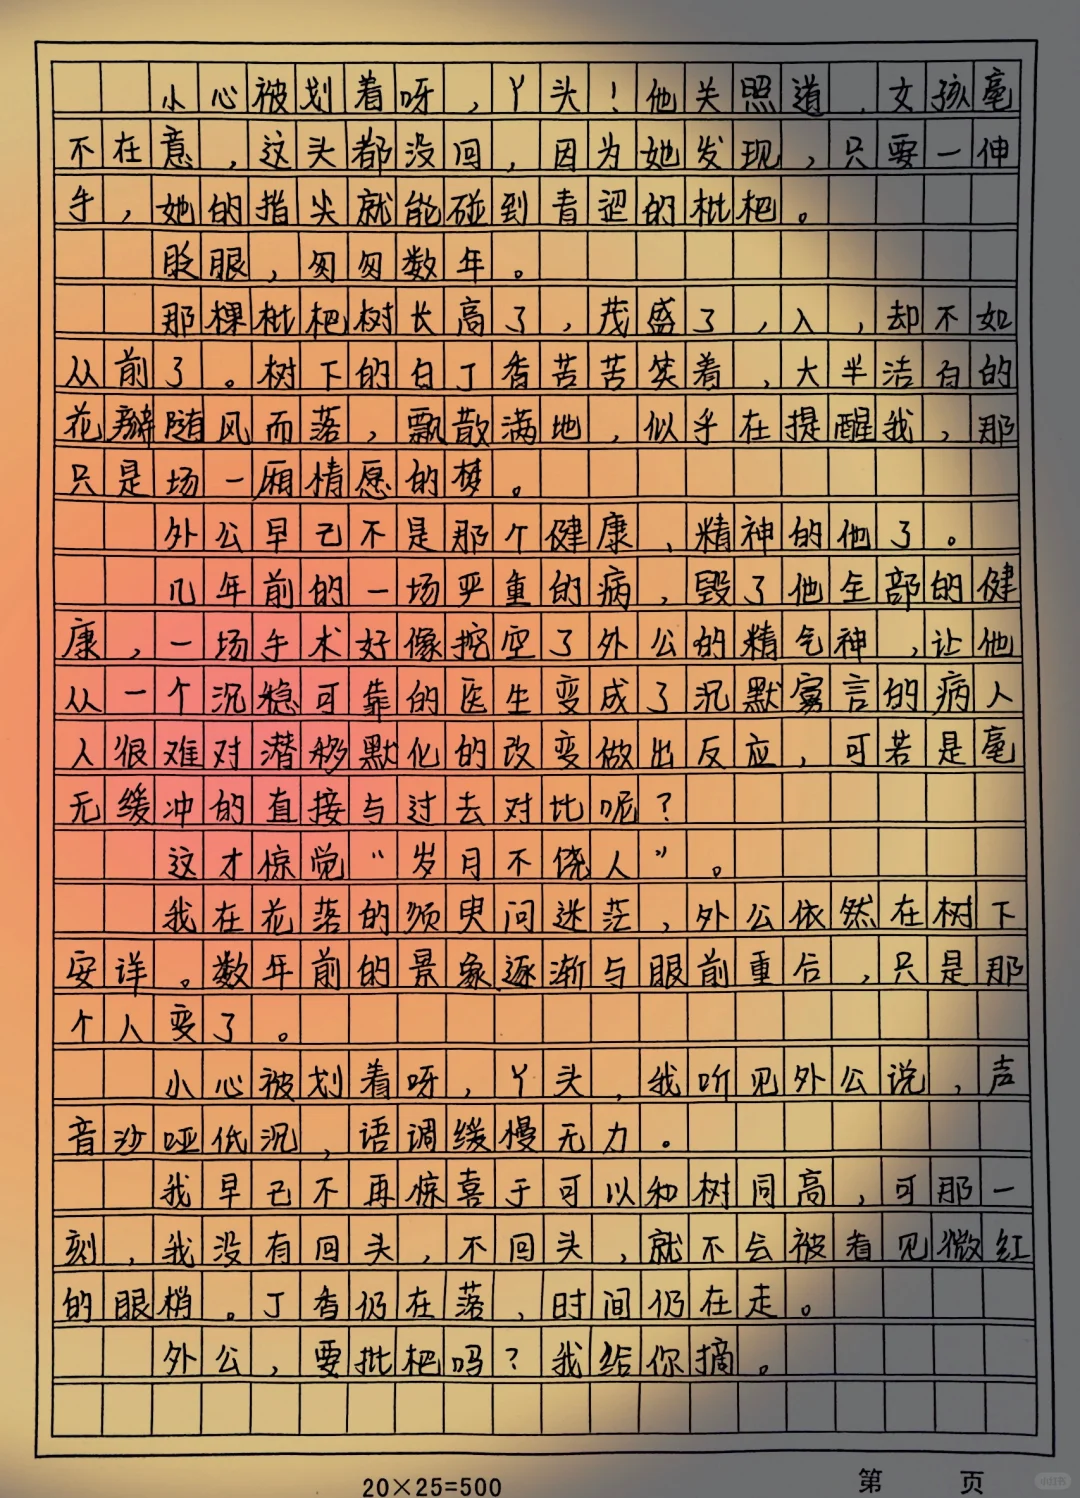 小心被划着呀，丫头！他关照道，女孩毫
不在意，这头都没回，因为她发现，只要一伸
手，她的指尖就能碰到青涩的枇杷。
眨眼，匆匆数年。
那棵枇杷树长高了，茂盛了，人，却不如
从前了。树下的白丁香苦苦笑着，大半洁白的
花瓣随风而落，飘散满地，似乎在提醒我，那
只是场一厢情愿的梦。
外公早已不是那个健康、精神的他了。
几年前的一场严重的病，毁了他全部的健
康，一场手术好像挖空了外公的精气神，让他
从一个沉稳可靠的医生变成了沉默寡言的病人
人很难对潜移默化的改变做出反应，可若是毫
无缓冲的直接与过去对比呢？
这才惊觉“岁月不饶人”。
我在花落的须臾间迷茫，外公依然在树下
安详。数年前的景象逐渐与眼前重合，只是那
个人变了。
小心被划着呀，丫头，我听见外公说，声
音沙哑低沉，语调缓慢无力。
我早已不再惊喜于可以和树同高，可那一
刻，我没有回头，不回头，就不会被看见微红
的眼梢。丁香仍在落，时间仍在走。
外公，要枇杷吗？我给你摘。
20×25=500
第 页
小红书